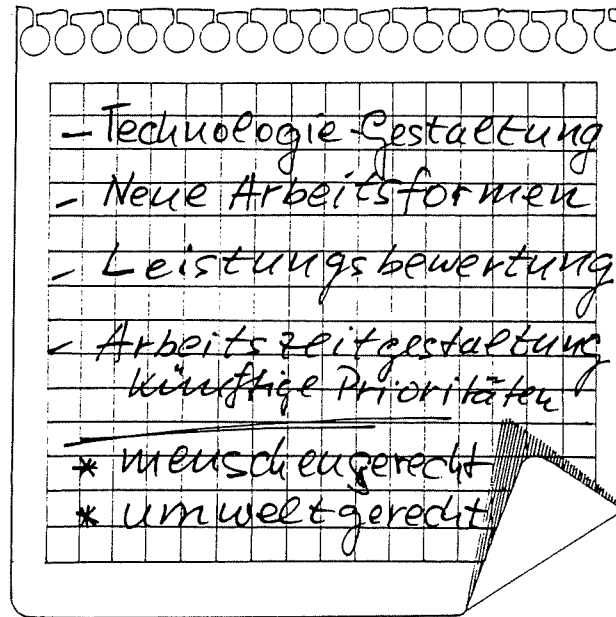 - Technologie-Gestaltung
- Neue Arbeitsformen
- Leistungsbewertung
- Arbeitszeitgestaltung
künftige Prioritäten
* menschengerecht
* umweltgerecht